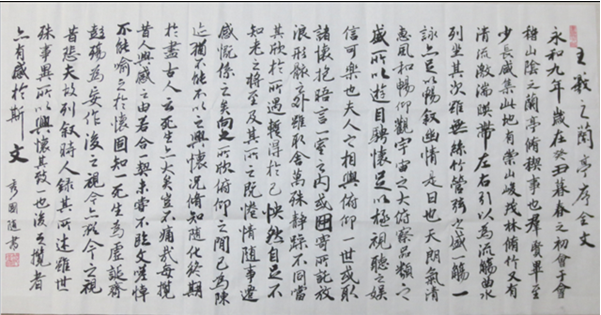 王羲之蘭亭序全文
永和九年歲在癸丑暮春之初會于會
稽山陰之蘭亭脩稧事也群賢畢至
少長咸集此地有崇山峻茂林脩竹又有
清流激湍暎帶左右引以為流觴曲水
列坐其次雖無絲竹管弦之盛一觴一
詠亦足以暢叙幽情是日也天朗氣清
惠風和暢仰觀宇宙之大俯察品類之
盛所以遊目騁懷足以極視聽之娛
信可樂也夫人之相與俯仰一世或取
諸懷抱晤言一室之內或因寄所託放
浪形骸之外雖取舍萬殊静躁不同當
其欣於所遇輙得於己怏然自足不
知老之將至及其所之既惓情隨事遷
感慨係之矣向之所欣俯仰之閒已為陳
迹猶不能不以之興懷況脩短隨化終期
於盡古人云死生亦大矣豈不痛哉每攬
昔人興感之由若合一契未嘗不臨文嗟悼
不能喻之於懷固知一死生為虛誕齊
彭殤為妄作後之視今亦猶今之視
昔悲夫故列叙時人錄其所述雖世
殊事異所以興懷其致一也後之攬者
亦有感於斯文